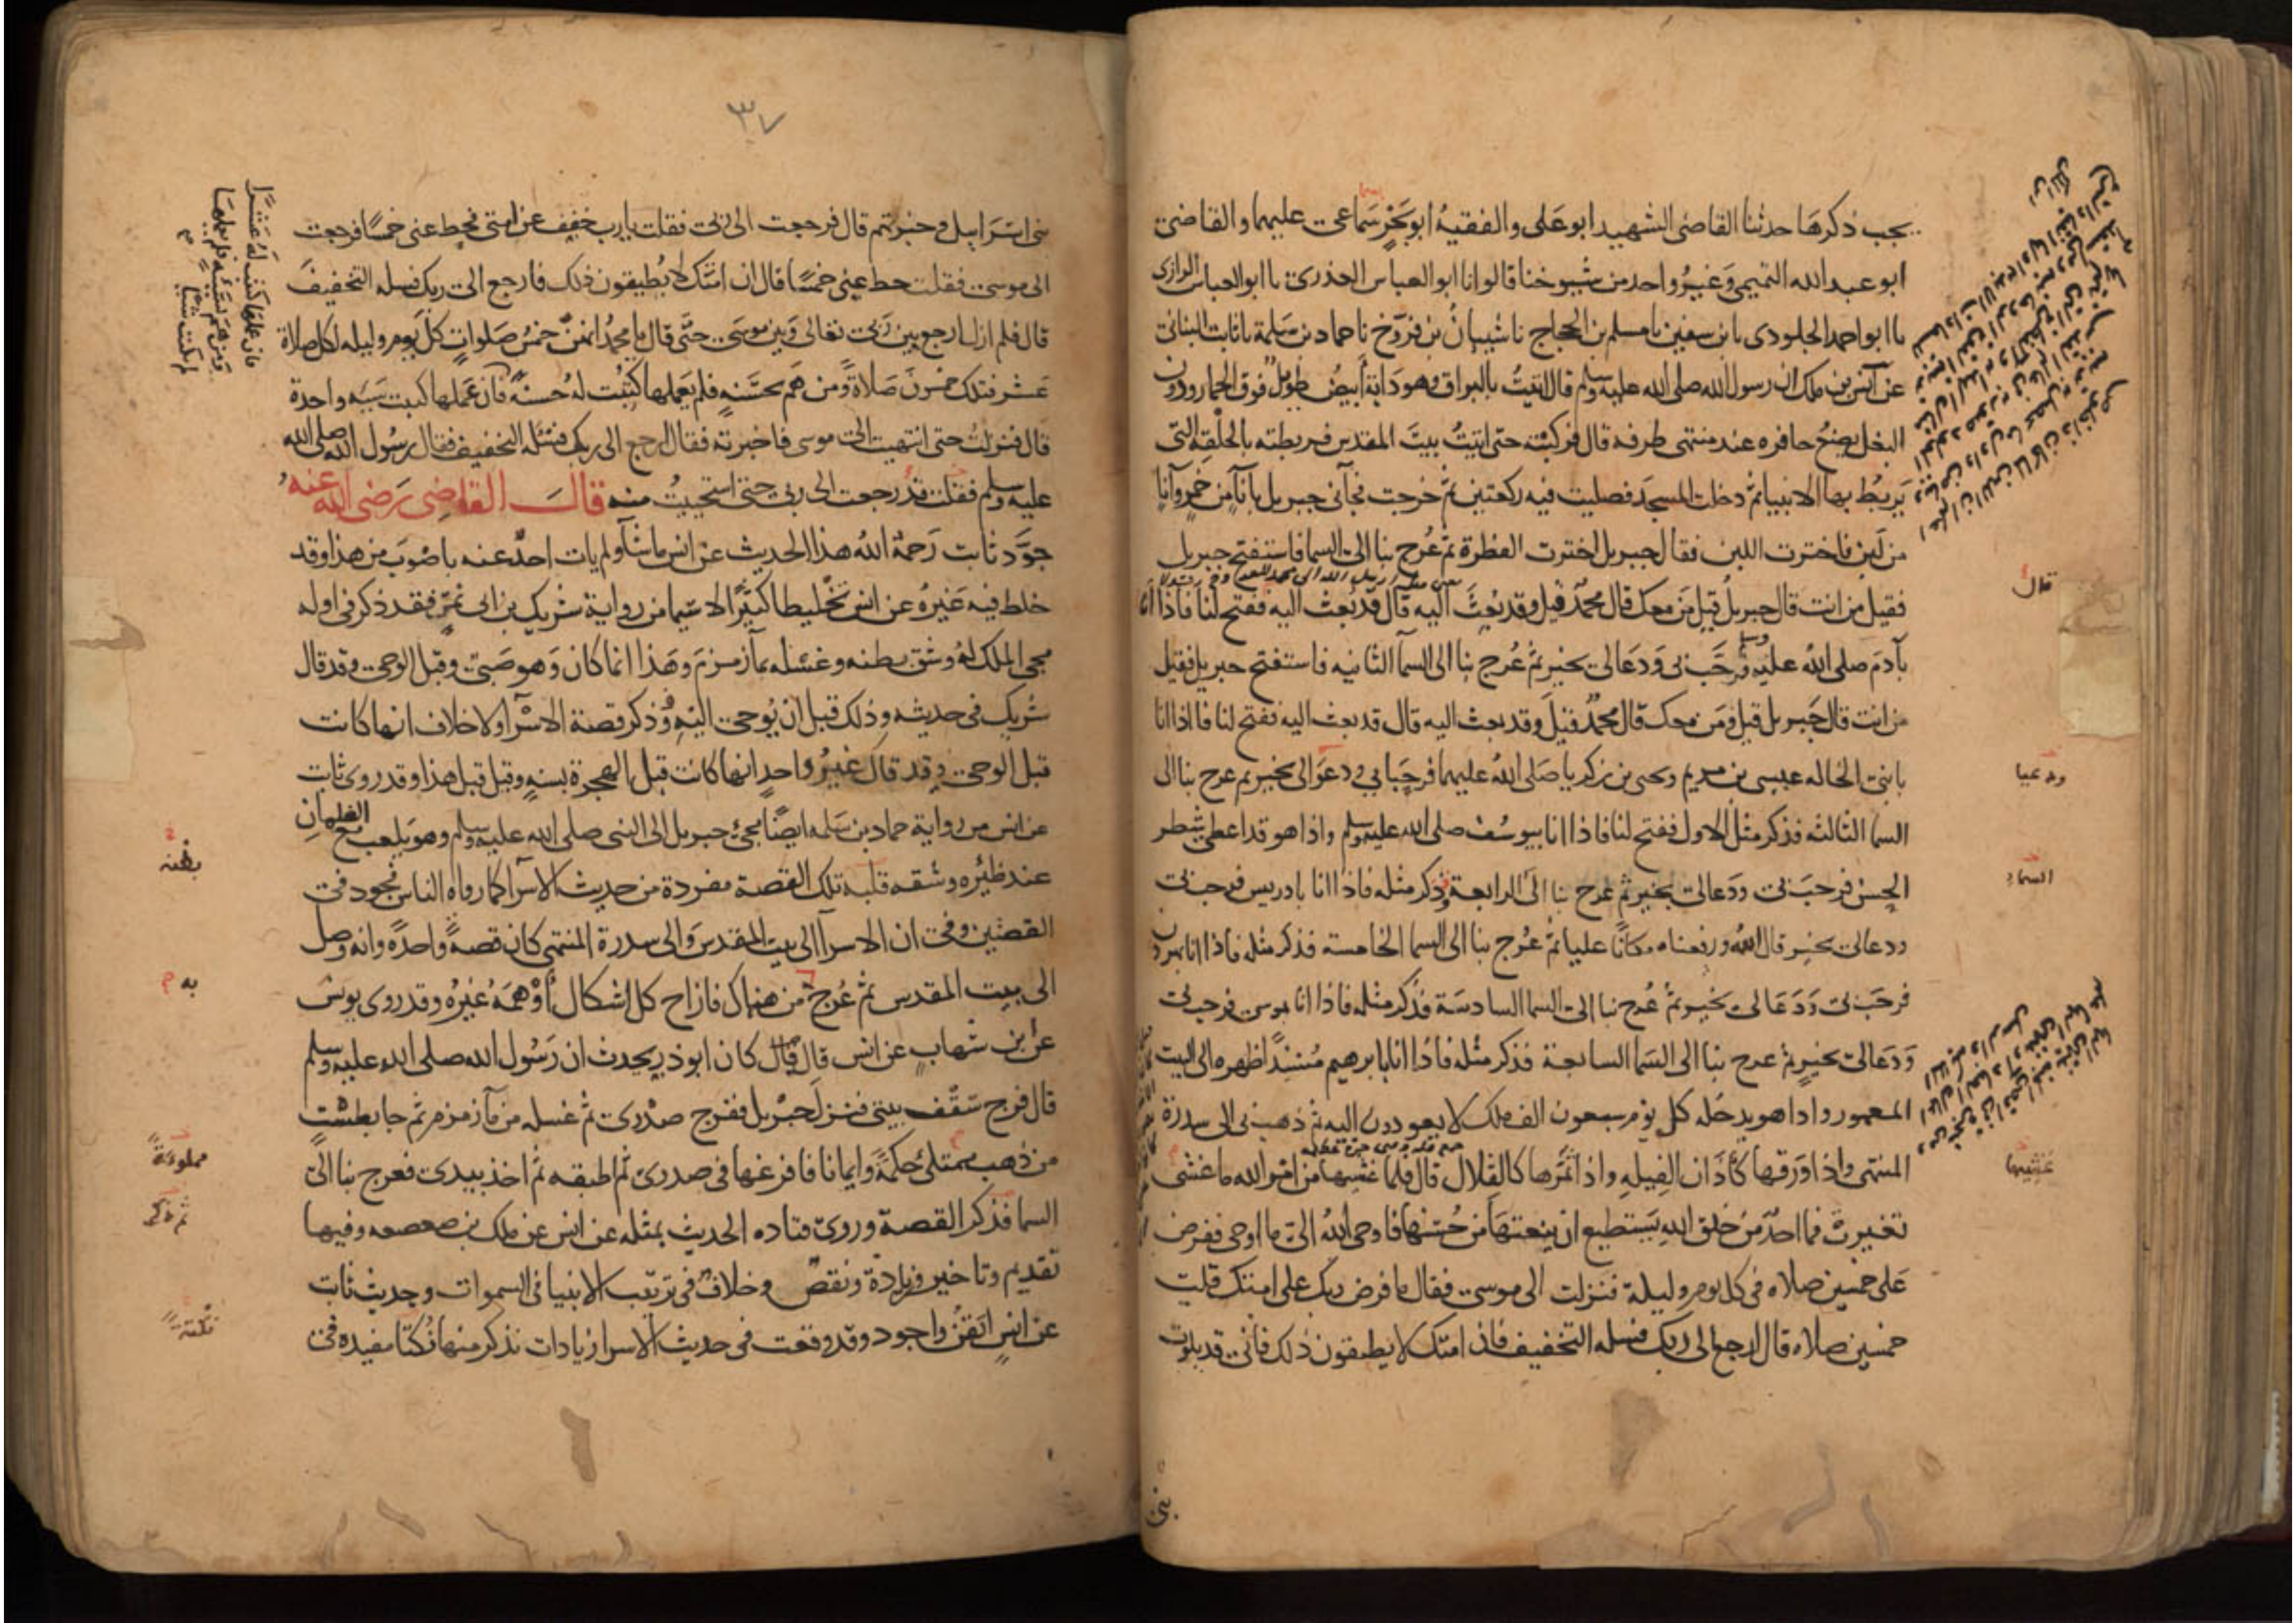 يجب ذكرها حدثنا القاضى الشهيد ابو على والفقيه ابو بحر سماعى عليهما والقاضى
ابو عبد الله التميمى وغير واحد من شيوخنا قالوا انا ابو العباس العذرى نا ابو العباس الرازى
نا ابو احمد الجلودى نا بن سفين نا مسلم بن الحجاج نا شيبان بن فروخ نا حماد بن سلمة نا ثابت البنانى
عن انس بن ملك ان رسول الله صلى الله عليه وسلم قال اتيت بالبراق وهو دابة أبيض طويل فوق الحمار ودون
البغل يضع حافره عند منتهى طرفه قال فركبته حتى اتيت بيت المقدس فربطته بالحلقة التى
يربط بها الانبيا ثم دخلت المسجد فصليت فيه ركعتين ثم خرجت فجآنى جبريل بانآ من خمر وآنا
من لبن فاخترت اللبن فقال جبريل اخترت الفطرة ثم عرج بنا الى السما فاستفتح جبريل
فقيل من انت قال جبريل قيل من معك قال محمد قيل وقد بعث اليه قال قد بعث اليه ففتح لنا فاذا انا
قال
بآدم صلى الله عليه وسلم فرحب بى ودعا لى بخير ثم عرج بنا الى السمآ الثانيه فاستفتح جبريل فقيل
من انت قال جبريل قيل ومن معك قال محمد قيل وقد بعث اليه قال قد بعث اليه ففتح لنا فاذا انا
بابنى الخاله عيسى بن مريم ويحيى بن زكريا صلى الله عليهما فرحبا بى ودعوا لى بخير ثم عرج بنا الى
ودعيا
السما الثالثه فذكر مثل الاول ففتح لنا فاذا انا بيوسف صلى الله عليه وسلم واذا هو قد اعطى شطر
الحسن فرحب بى ودعا لى بخير ثم عرج بنا الى الرابعة وذكر مثله فاذا انا بادريس فرحب بى
السماء
ودعا لى بخير قال الله ورفعناه مكانا عليا ثم عرج بنا الى السما الخامسة فذكر مثله فاذا انا بهرون
فرحب بى ودعا لى بخير ثم عرج بنا الى السما السادسة فذكر مثله فاذا انا بموسى فرحب بى
ودعا لى بخير ثم عرج بنا الى السما السابعة فذكر مثله فاذا انا بابرهيم مسندا ظهره الى البيت
المعمور واذا هو يدخله كل يوم سبعون الف ملك لا يعودون اليه ثم ذهب بى الى سدرة
المنتهى واذا ورقها كآذان الفيله واذا ثمرها كالقلال قال فلما غشيها من امر الله ما غشى
غشيها
تغيرت فما احد من خلق الله يستطيع ان ينعتها من حسنها فاوحى الله الى ما اوحى ففرض
على خمسين صلاه فى كل يوم وليلة فنزلت الى موسى فقال ما فرض ربك على امتك قلت
خمسين صلاه قال ارجع الى ربك فسله التخفيف فان امتك لا يطيقون ذلك فانى قد بلوت
بنى
٣٧
بنى اسرايل وخبرتهم قال فرجعت الى ربى فقلت يا رب خفف عن امتى فحط عنى خمسا فرجعت
الى موسى فقلت حط عنى خمسا قال ان امتك لا يطيقون ذلك فارجع الى ربك فسله التخفيف
قال فلم ازل ارجع بين ربى تعالى وبين موسى حتى قال يا محمد انهن خمس صلوات كل يوم وليله لكل صلاة
عشر فتلك خمسون صلاة ومن هم بحسنة فلم يعملها كتبت له حسنة فان عملها كتبت سيئه واحدة
فان عملها كتبت له عشرا
ومن هم بسيئه فلم يعملها
لم تكتب شيا
قال فنزلت حتى انتهيت الى موسى فاخبرته فقال ارجع الى ربك فسله التخفيف فقال رسول الله صلى الله
عليه وسلم فقلت قد رجعت الى ربى حتى استحييت منه قال القاضى رضى الله عنه
جود ثابت رحمه الله هذا الحديث عن انس ما شآ ولم يات احد عنه باصوب من هذا وقد
خلط فيه غيره عن انس تخليطا كثيرا لا سيما من رواية شريك بن ابى نمر فقد ذكر فى اوله
مجى الملك له وشق بطنه وغسله بمآ زمزم وهذا انما كان وهو صبى وقبل الوحى وقد قال
شريك فى حديثه وذلك قبل ان يوحى اليه وذكر قصة الاسرآ ولا خلاف انها كانت
قبل الوحى وقد قال غير واحد انها كانت قبل الهجرة بسنه وقيل قبل هذا وقد روى ثابت
عن انس من رواية حماد بن سلمه ايضا مجئ جبريل الى النبى صلى الله عليه وسلم وهو يلعب مع الغلمان
عند ظئره وشقه قلبه تلك القصة مفردة من حديث الاسرآ كما رواه الناس فجود فى
القصتين وفى ان الاسرآ الى بيت المقدس والى سدرة المنتهى كان قصة واحدة وانه وصل
الى بيت المقدس ثم عرج من هناك فازاح كل اشكال أوهمه غيره وقد روى يونس
به
عن بن شهاب عن انس قال قال كان ابو ذر يحدث ان رسول الله صلى الله عليه وسلم
قال فرج سقف بيتى فنزل جبريل ففرج صدرى ثم غسله من مآ زمزم ثم جا بطست
من ذهب ممتلئ حكمة وايمانا فافرغها فى صدرى ثم اطبقه ثم اخذ بيدى فعرج بنا الى
مملوءة
السما فذكر القصة وروى قتاده الحديث بمثله عن انس عن ملك بن صعصعه وفيها
ثم ذكر
تقديم وتاخير وزيادة ونقص وخلاف فى ترتيب الانبيا فى السموات وحديث ثابت
عن انس اتقن واجود وقد وقعت فى حديث الاسرا زيادات نذكر منها نكتا مفيده فى